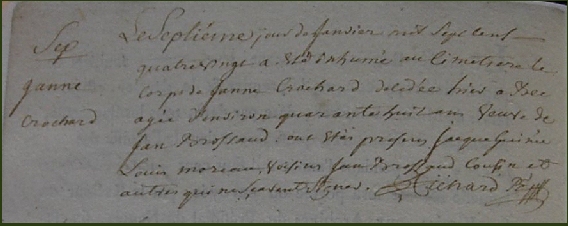 Sep
janne
Crochard
Le Septiéme jour de janvier mil Sept cent
quatre vingt a eté inhumé au Cimetiere le
Corps de janne Crochard decedée hier a
agée d'environ quarante huit ans veuve de
jan Brossaud. ont etés presens jacque
Louis moreau, voisins jan Brossaud Cousin et
autres qui ne Scavent Signer. Richard